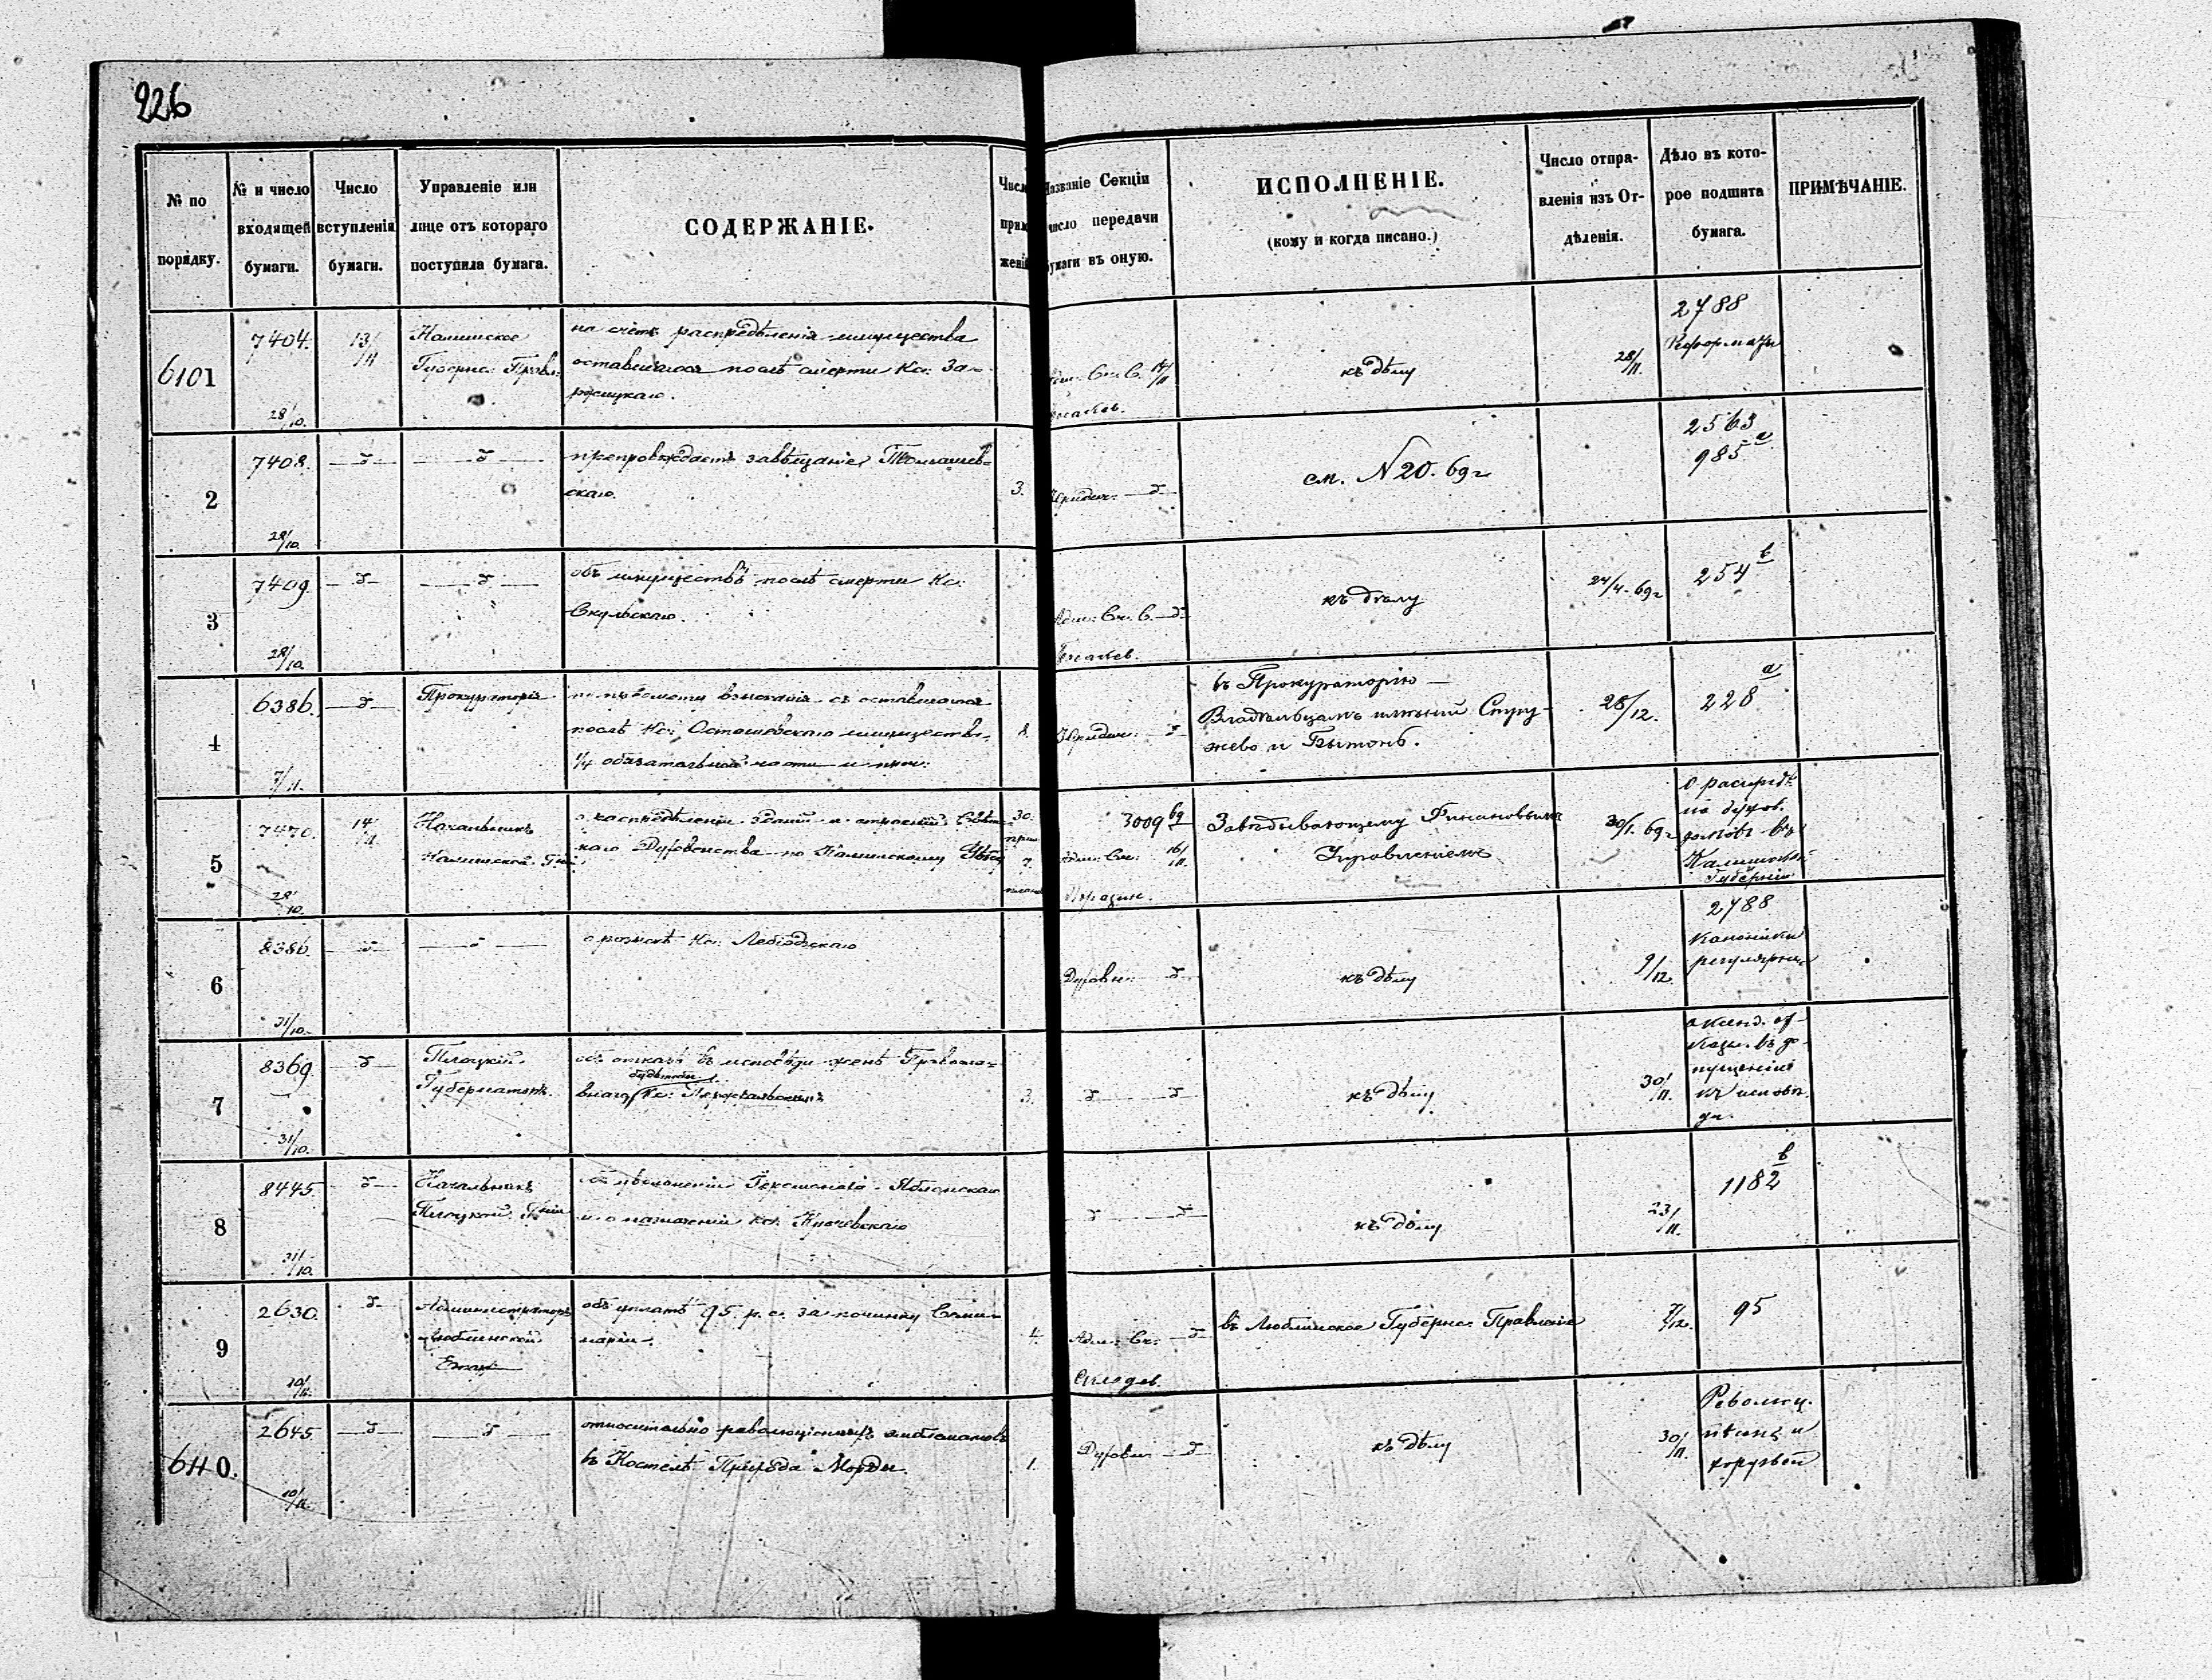 226
№ по порядку.
№ и число входящей бумаги.
Число вступленія бумаги.
Управленіе или лице отъ котораго поступила бумага.
СОДЕРЖАНІЕ.
Числ прил женій
Названіе Секціи число передачи бумаги въ оную.
ИСПОЛНЕНІЕ.
(кому и когда писано.)
Число отправленія изъ Отдѣленія.
Дѣло въ которое подшита бумага.
ПРИМѢЧАНІЕ.
6101
7404.
28/10.
13/11
Калишское
Губернс: Правл:
на счетъ распредѣленія имущества
оставшагося послѣ смерти Кс: За-
Адм: Сч: С. 14/11
къ дѣлу
28/11.
2788
Реформаты
2
7408.
28/10.
препровождаетъ завѣщаніе Томашев-
скаго.
3.
Юридич:
см. N 20. 69 г
2563
985 а
3
7409.
28/10.
объ имуществѣ послѣ смерти Кс:
Скульскаго.
Адм: Сч: С.
къ дѣлу
24/4. 69 г
254 в
4
6386.
7/11.
Прокураторія
взысканія съ оставшагося
послѣ Кс: Осташевскаго имущества
1/4 обязательной части и проч:
8.
Юридич:
въ Прокураторію —
Владѣльцамъ имѣній Стру-
жево и Бытонь.
28/12.
228 а
5
7470.
28/10.
14/11
Начальникъ
Калишской Г-ніи
о распредѣленіи зданій и строеній Свѣтс-
каго Духовенства по Калишскому Уѣзду
30.
3009 69
Адм: Сч: 16/11.
Завѣдывающему Финансовымъ
Управленіемъ
30/1. 69 г
О распредѣ.
духов.
домовъ въ
Калишской
Губерніи
6
8386.
31/10.
о розыскѣ Кс: Лебіодзскаго
Духовн:
къ дѣлу
9/12.
2788
Каноники
регулярные
7
8369.
31/10.
Плоцкій
Губернаторъ.
объ отказѣ въ исповѣди женѣ
3.
къ дѣлу
30/11.
о ксенд. от-
каз. въ до-
пущеніи
къ исповѣ
ди.
8
8445.
31/10.
Начальникъ
Плоцкой Г-ніи
Яблонскаго
и о назначеніи кс:
къ дѣлу
23/11.
1182 в
9
2630.
10/11.
Администраторъ
Люблинской
Епарх
объ уплатѣ 95. р. с. за починку Семи-
наріи.
4.
Адм: Сч:
въ Люблинское Губернс: Правленіе
7/12.
95
6110.
2645.
10/11.
относительно революціонныхъ эмблематовъ
въ Костелѣ Прихода Морды.
1.
Духовн
къ дѣлу
30/11.
Революц.
пѣснь и
хоругвей